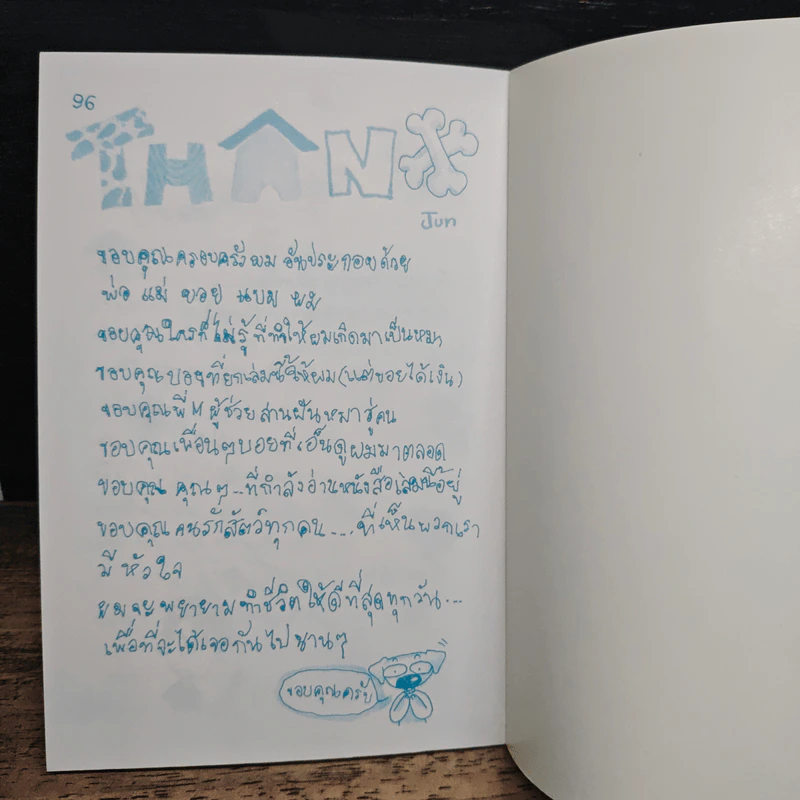 96
THANX
Jun
ขอบคุณครอบครัวผม อันประกอบด้วย
พ่อ แม่ บอย แบม ผม
ขอบคุณใครก็ไม่รู้ ที่ทำให้ผมเกิดมาเป็นหมา
ขอบคุณบอยที่ยกเล่มนี้ให้ผม (แต่บอยได้เงิน)
ขอบคุณพี่ M ผู้ช่วยสานฝันหมาสู่คน
ขอบคุณเพื่อนๆบอยที่เอ็นดูผมมาตลอด
ขอบคุณ คุณๆ...ที่กำลังอ่านหนังสือเล่มนี้อยู่
ขอบคุณคนรักสัตว์ทุกคน....ที่เห็นพวกเรา
มีหัวใจ
ผมจะพยายามทำชีวิตให้ดีที่สุดทุกวัน...
เพื่อที่จะได้เจอกันไปนานๆ
ขอบคุณครับ